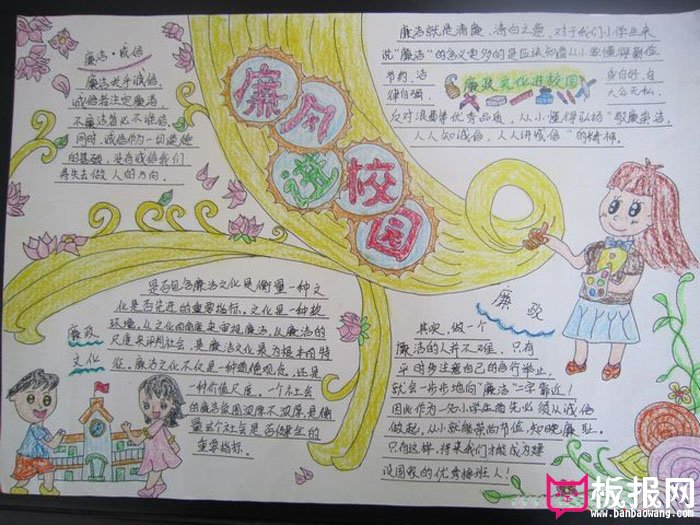 廉洁·诚信
廉洁关乎诚信,
诚信者注定廉洁,
不廉洁者必不诚信,
同时,诚信作为一切道德
的基础,丢弃诚信我们
将失去做人的方向.
廉风
进校园
廉洁就是清廉、清白之意,对于我们小学生来
说"廉洁"的含义更多的是应该知道从小要懂得勤俭
节约、洁
律自强、
廉政文化进校园
贵自好、自
大公无私、
反对浪费等优秀品质,从小懂得弘扬"敬廉崇洁,
人人知诚信,人人讲诚信"的精神。
廉政
文化
是否包含廉洁文化是衡量一种文
化是否先进的重要指标。文化是一种救
环境,从文化的角度来审视廉洁,从廉洁的
尺度来评判社会,是廉洁文化最为根本的特
征。廉洁文化不仅是一种道德观念,还是
一种价值尺度。一个社会
的廉洁氛围浓厚不浓厚是衡
量这个社会是否健全的
重要指标。
廉政
其实,做一个
廉洁的人并不难,只有
平时多注意自己的言行举止,
就会一步步地向"廉洁"二字靠近!
因此作为一名小学生首先必须从诚信
做起,从小就能荣尚节俭,知晓廉耻。
只有这样,将来我们才能成为建
设国家的优秀接班人!
板报网
www.banbaowang.com